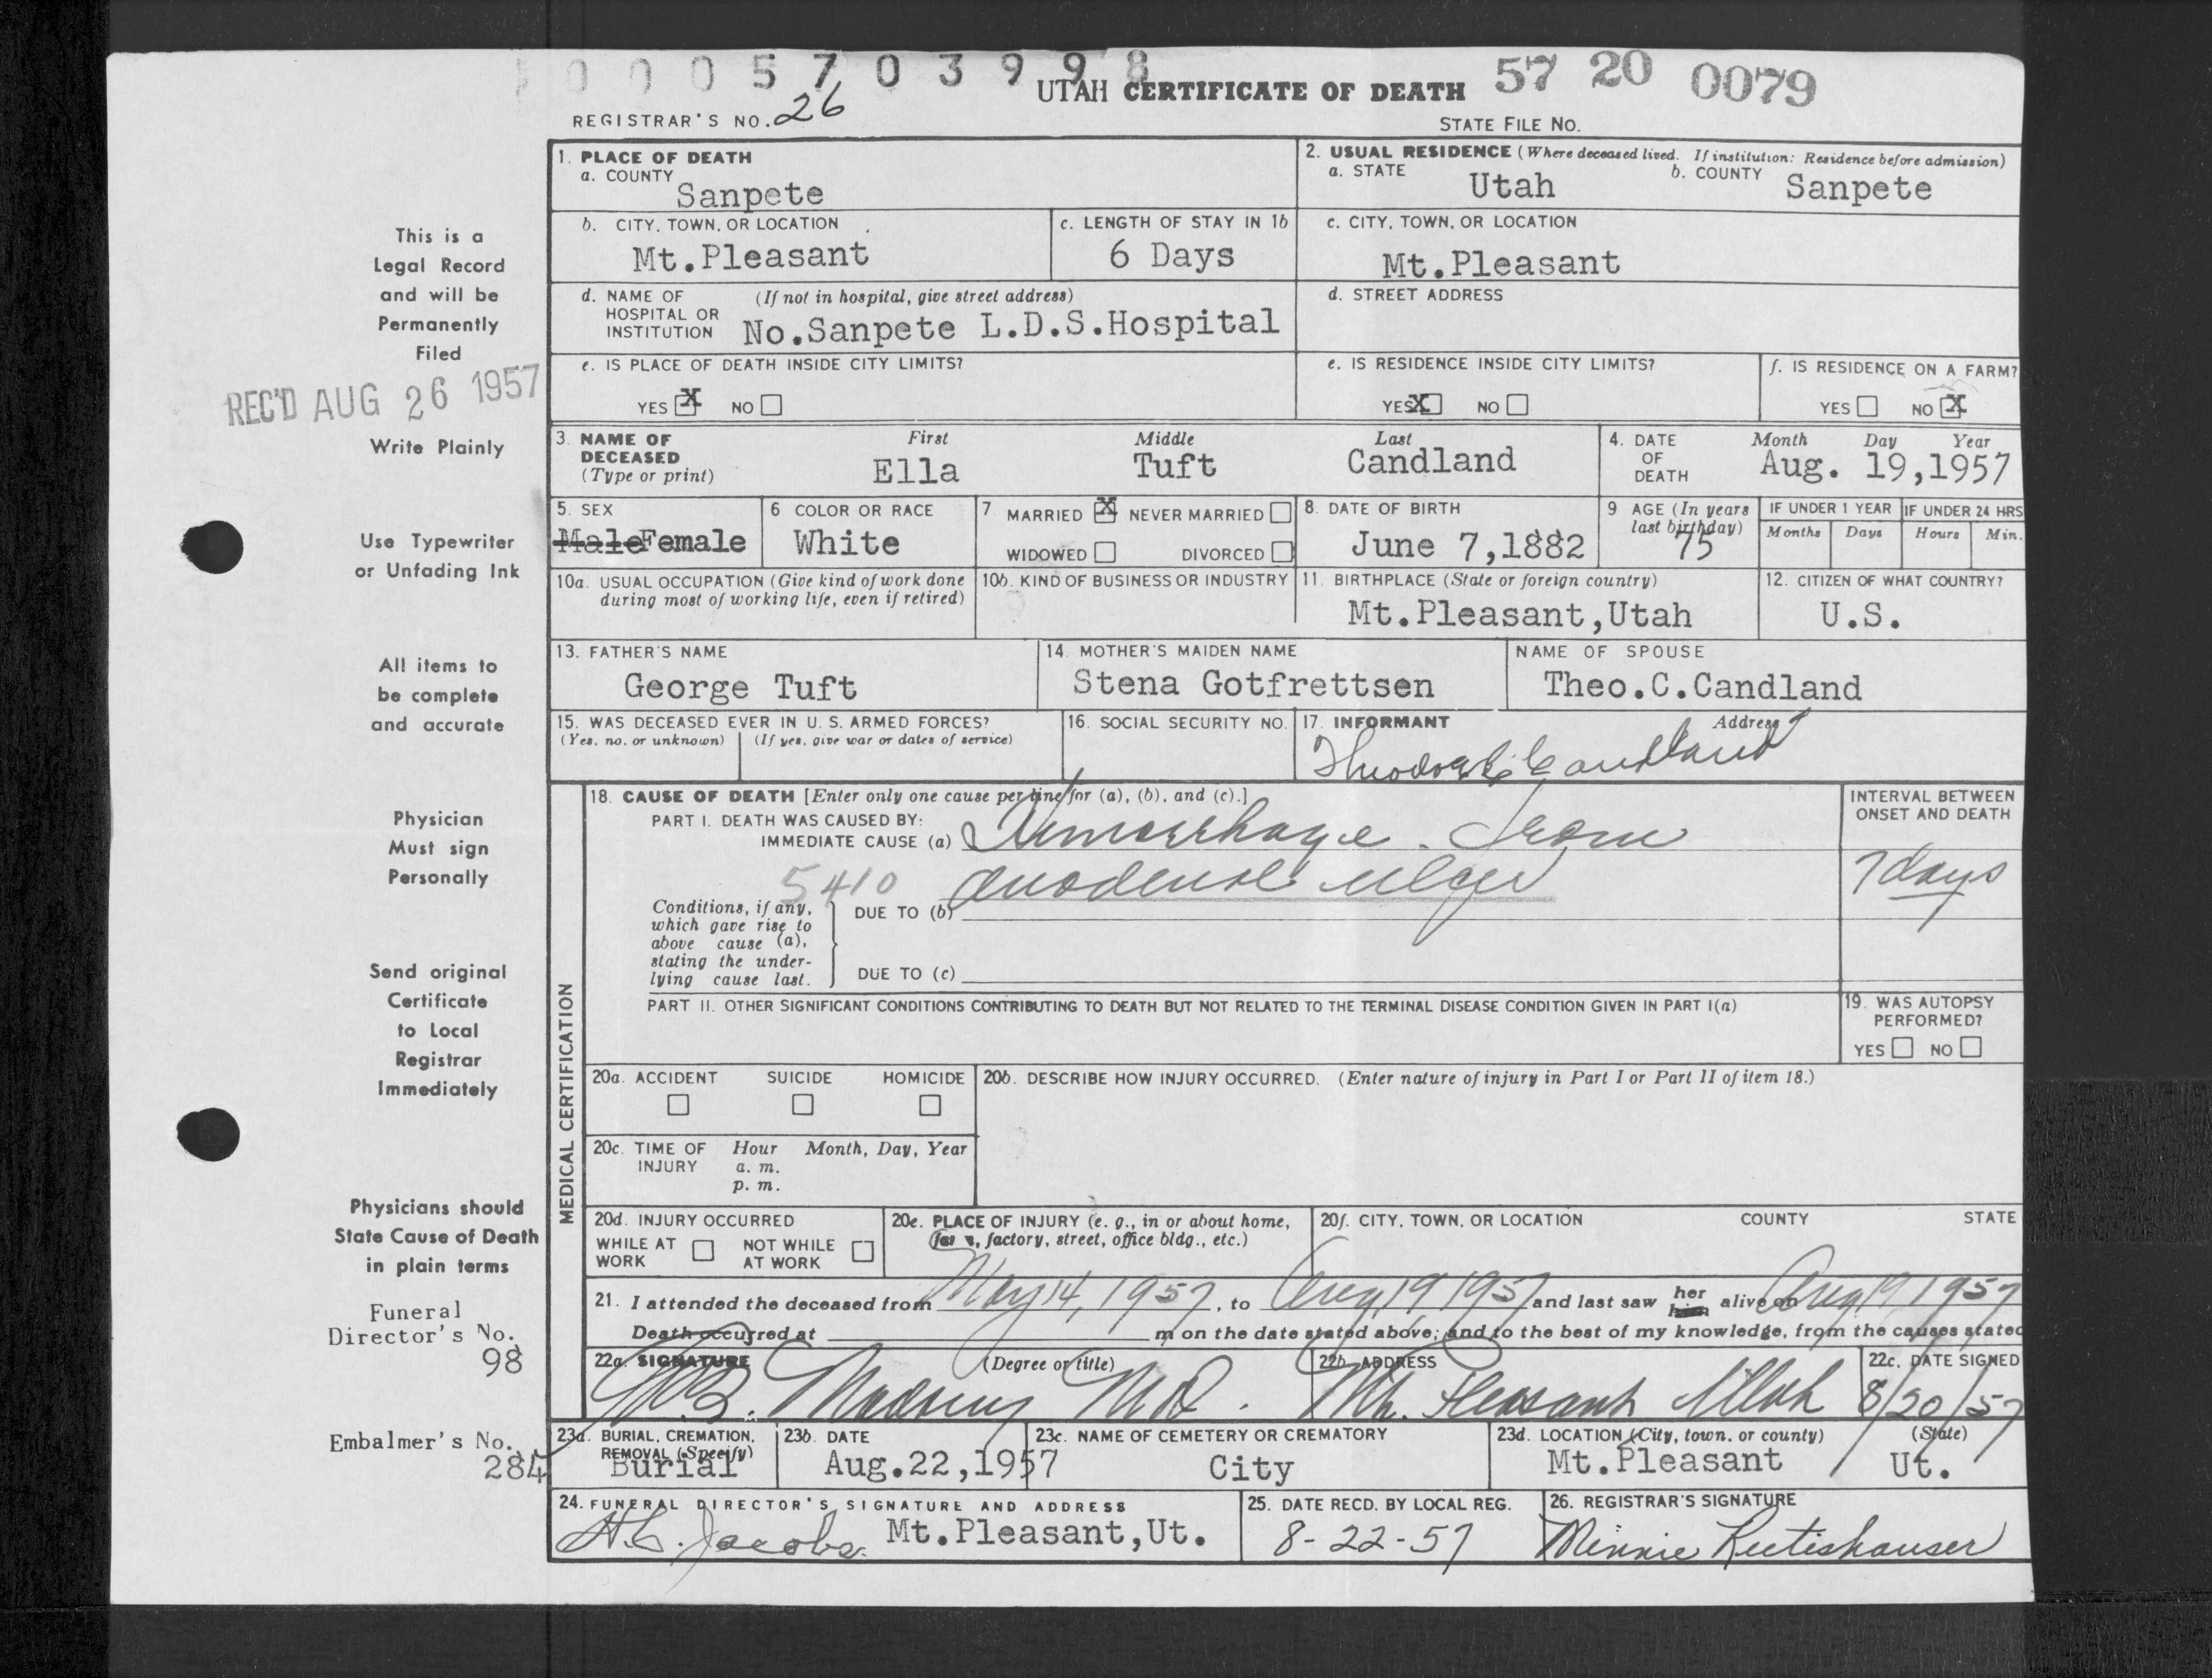 0 0 0 5 7 0 3 9 9 8
UTAH CERTIFICATE OF DEATH 57 20 0079
REGISTRAR'S NO. 26
STATE FILE NO.
This is a
Legal Record
and will be
Permanently
Filed
REC'D AUG 26 1957
Write Plainly
Use Typewriter
or Unfading Ink
All items to
be complete
and accurate
Physician
Must sign
Personally
Send original
Certificate
to Local
Registrar
Immediately
Physicians should
State Cause of Death
in plain terms
Funeral
Director's No.
98
Embalmer's No.
284
1. PLACE OF DEATH
a. COUNTY
Sanpete
2. USUAL RESIDENCE (Where deceased lived. If institution: Residence before admission)
a. STATE Utah b. COUNTY Sanpete
b. CITY, TOWN, OR LOCATION
Mt.Pleasant
c. LENGTH OF STAY IN 1b
6 Days
c. CITY, TOWN, OR LOCATION
Mt.Pleasant
d. NAME OF HOSPITAL OR INSTITUTION (If not in hospital, give street address)
No.Sanpete L.D.S.Hospital
d. STREET ADDRESS
e. IS PLACE OF DEATH INSIDE CITY LIMITS?
YES X NO
e. IS RESIDENCE INSIDE CITY LIMITS?
YES X NO
f. IS RESIDENCE ON A FARM?
YES NO X
3. NAME OF DECEASED (Type or print)
First Middle Last
Ella Tuft Candland
4. DATE OF DEATH
Month Day Year
Aug. 19,1957
5. SEX
Male Female
6. COLOR OR RACE
White
7 MARRIED X NEVER MARRIED
WIDOWED DIVORCED
8. DATE OF BIRTH
June 7,1882
9 AGE (In years last birthday)
75
IF UNDER 1 YEAR
Months Days
IF UNDER 24 HRS
Hours Min.
10a. USUAL OCCUPATION (Give kind of work done during most of working life, even if retired)
10b. KIND OF BUSINESS OR INDUSTRY
11. BIRTHPLACE (State or foreign country)
Mt.Pleasant,Utah
12. CITIZEN OF WHAT COUNTRY?
U.S.
13. FATHER'S NAME
George Tuft
14. MOTHER'S MAIDEN NAME
Stena Gotfrettsen
NAME OF SPOUSE
Theo.C.Candland
15. WAS DECEASED EVER IN U.S. ARMED FORCES?
(Yes, no, or unknown) (If yes, give war or dates of service)
16. SOCIAL SECURITY NO.
17. INFORMANT Address
Theodore C. Candland
MEDICAL CERTIFICATION
18. CAUSE OF DEATH [Enter only one cause per line for (a), (b), and (c).]
PART I. DEATH WAS CAUSED BY:
IMMEDIATE CAUSE (a) Hemorrhage from
5410 duodenal ulcer
Conditions, if any, which gave rise to above cause (a), stating the underlying cause last.
DUE TO (b)
DUE TO (c)
INTERVAL BETWEEN ONSET AND DEATH
7 days
PART II. OTHER SIGNIFICANT CONDITIONS CONTRIBUTING TO DEATH BUT NOT RELATED TO THE TERMINAL DISEASE CONDITION GIVEN IN PART I(a)
19. WAS AUTOPSY PERFORMED?
YES NO
20a. ACCIDENT SUICIDE HOMICIDE
20b. DESCRIBE HOW INJURY OCCURRED. (Enter nature of injury in Part I or Part II of item 18.)
20c. TIME OF INJURY Hour Month, Day, Year
a. m.
p. m.
20d. INJURY OCCURRED
WHILE AT WORK NOT WHILE AT WORK
20e. PLACE OF INJURY (e. g., in or about home, farm, factory, street, office bldg., etc.)
20f. CITY, TOWN, OR LOCATION COUNTY STATE
21. I attended the deceased from May 14, 1957, to Aug 19 1957 and last saw her him alive on Aug 19 1957
Death occurred at m on the date stated above; and to the best of my knowledge, from the causes stated
22a. SIGNATURE (Degree or title)
Madsen M.D.
22b. ADDRESS
Mt. Pleasant Utah
22c. DATE SIGNED
8/20/57
23a. BURIAL, CREMATION, REMOVAL (Specify)
Burial
23b. DATE
Aug.22,1957
23c. NAME OF CEMETERY OR CREMATORY
City
23d. LOCATION (City, town, or county) (State)
Mt.Pleasant Ut.
24. FUNERAL DIRECTOR'S SIGNATURE AND ADDRESS
H.C. Jacobs. Mt.Pleasant,Ut.
25. DATE RECD. BY LOCAL REG.
8-22-57
26. REGISTRAR'S SIGNATURE
Minnie Rutishauser